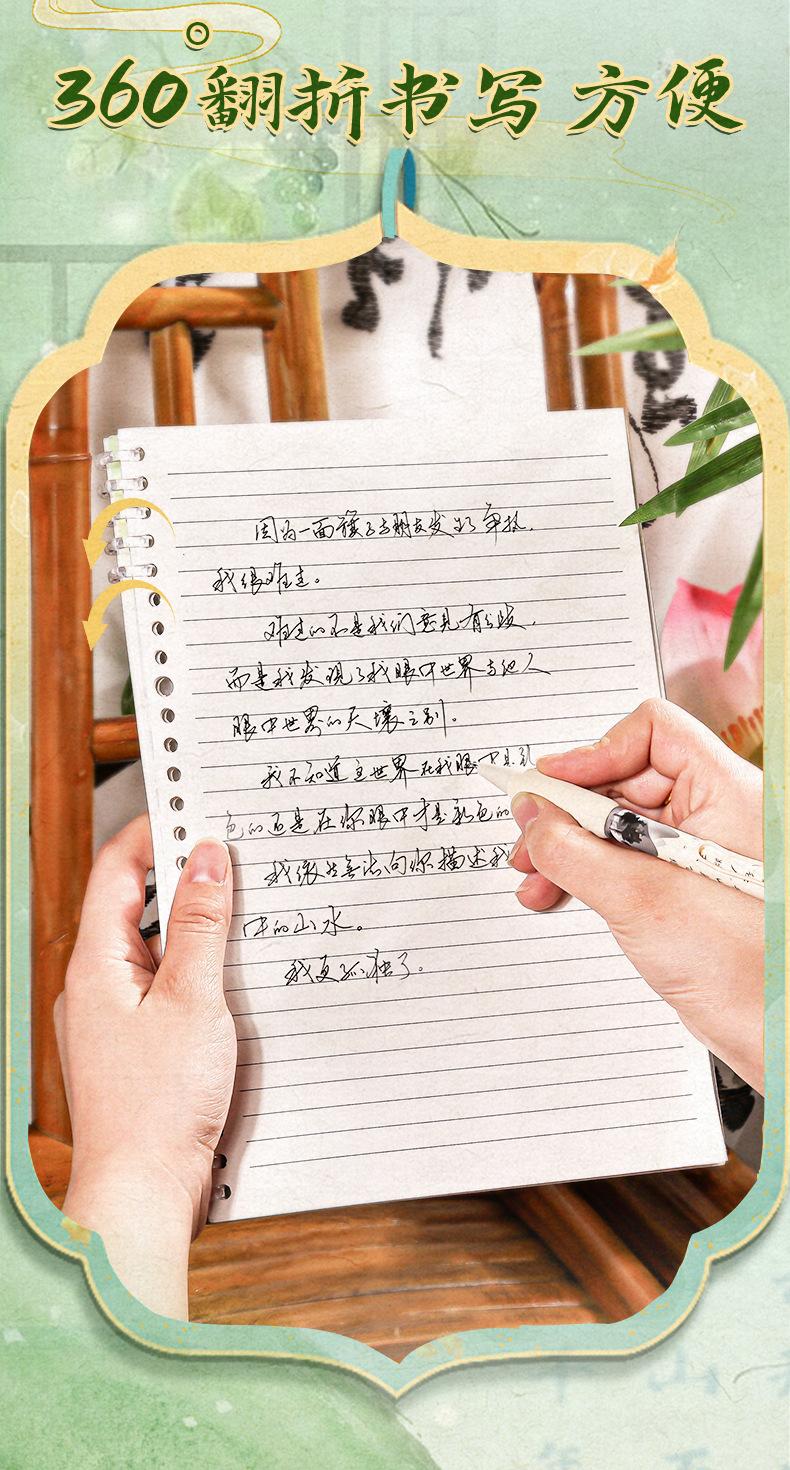 360翻折书写 方便
因为一面旗子与朋友发生了争执，
我很难过。
难过的不是我们意见有分歧，
而是我发现了我眼中世界与他人
眼中世界的天壤之别。
我不知道这世界在我眼中是
色的还是在你眼中才是彩色的
我依然无法向你描述我
中的山水。
我更孤独了。